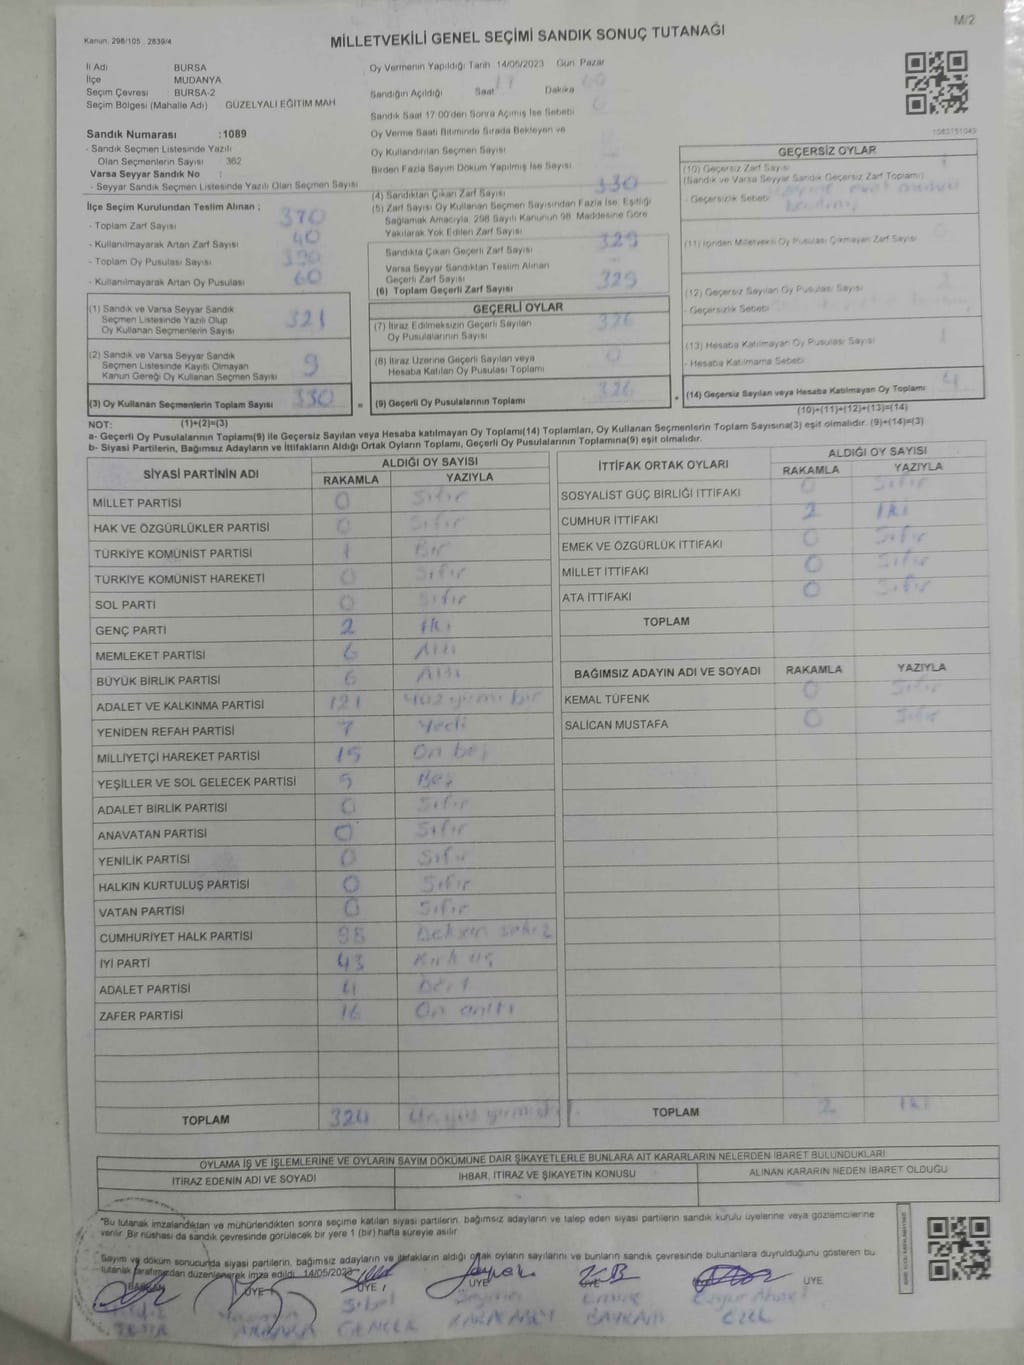 M/2
Kanun: 298/105 , 2839/4
MİLLETVEKİLİ GENEL SEÇİMİ SANDIK SONUÇ TUTANAĞI
İl Adı BURSA
İlçe MUDANYA
Seçim Çevresi : BURSA-2
Seçim Bölgesi (Mahalle Adı) GÜZELYALI EĞİTİM MAH
Sandık Numarası :1089
- Sandık Seçmen Listesinde Yazılı
Olan Seçmenlerin Sayısı 362
Varsa Seyyar Sandık No :
- Seyyar Sandık Seçmen Listesinde Yazılı Olan Seçmen Sayısı
İlçe Seçim Kurulundan Teslim Alınan ;
- Toplam Zarf Sayısı 370
- Kullanılmayarak Artan Zarf Sayısı 40
- Toplam Oy Pusulası Sayısı 390
- Kullanılmayarak Artan Oy Pusulası 60
(1) Sandık ve Varsa Seyyar Sandık
Seçmen Listesinde Yazılı Olup
Oy Kullanan Seçmenlerin Sayısı 321
(2) Sandık ve Varsa Seyyar Sandık
Seçmen Listesinde Kayıtlı Olmayan
Kanun Gereği Oy Kullanan Seçmen Sayısı 9
(3) Oy Kullanan Seçmenlerin Toplam Sayısı 330
(1)+(2)=(3)
Oy Vermenin Yapıldığı Tarih 14/05/2023 Gün Pazar
Sandığın Açıldığı Saat 17 Dakika
Sandık Saat 17 00'den Sonra Açımış İse Sebebi
Oy Verme Saati Bitiminde Sırada Bekleyen ve
Oy Kullandırılan Seçmen Sayısı
Birden Fazla Sayım Döküm Yapılmış İse Sayısı
(4) Sandıktan Çıkan Zarf Sayısı 330
(5) Zarf Sayısı Oy Kullanan Seçmen Sayısından Fazla İse, Eşitliği
Sağlamak Amacıyla, 298 Sayılı Kanunun 98. Maddesine Göre
Yakılarak Yok Edilen Zarf Sayısı
Sandıkta Çıkan Geçerli Zarf Sayısı 329
Varsa Seyyar Sandıktan Teslim Alınan
Geçerli Zarf Sayısı
(6) Toplam Geçerli Zarf Sayısı 329
GEÇERLİ OYLAR
(7) İtiraz Edilmeksizin Geçerli Sayılan
Oy Pusulalarının Sayısı 326
(8) İtiraz Üzerine Geçerli Sayılan veya
Hesaba Katılan Oy Pusulası Toplamı 0
= (9) Geçerli Oy Pusulalarının Toplamı 326 +
1083151049
GEÇERSİZ OYLAR
(10) Geçersiz Zarf Sayısı 1
(Sandık ve Varsa Seyyar Sandık Geçersiz Zarf Toplamı)
- Geçersizlik Sebebi
(11) İçinden Milletvekili Oy Pusulası Çıkmayan Zarf Sayısı
(12) Geçersiz Sayılan Oy Pusulası Sayısı
- Geçersizlik Sebebi
(13) Hesaba Katılmayan Oy Pusulası Sayısı 1
- Hesaba Katılmama Sebebi
(14) Geçersiz Sayılan veya Hesaba Katılmayan Oy Toplamı 4
(10)+(11)+(12)+(13)=(14)
NOT:
a- Geçerli Oy Pusulalarının Toplamı(9) ile Geçersiz Sayılan veya hesaba katılmayan Oy Toplamı(14) Toplamları, Oy Kullanan Seçmenlerin Toplam Sayısına(3) eşit olmalıdır. (9)+(14)=(3)
b- Siyasi Partilerin, Bağımsız Adayların ve İttifakların Aldığı Ortak Oyların Toplamı, Geçerli Oy Pusulalarının Toplamına(9) eşit olmalıdır.
SİYASİ PARTİNİN ADI ALDIĞI OY SAYISI
RAKAMLA YAZIYLA
MİLLET PARTİSİ 0 Sıfır
HAK VE ÖZGÜRLÜKLER PARTİSİ 0 Sıfır
TÜRKİYE KOMÜNİST PARTİSİ 1 Bir
TÜRKİYE KOMÜNİST HAREKETİ 0 Sıfır
SOL PARTİ 0 Sıfır
GENÇ PARTİ 2 İki
MEMLEKET PARTİSİ 6 Altı
BÜYÜK BİRLİK PARTİSİ 6 Altı
ADALET VE KALKINMA PARTİSİ 121 Yüz yirmi bir
YENİDEN REFAH PARTİSİ 7 Yedi
MİLLİYETÇİ HAREKET PARTİSİ 15 On beş
YEŞİLLER VE SOL GELECEK PARTİSİ 5 Beş
ADALET BİRLİK PARTİSİ 0 Sıfır
ANAVATAN PARTİSİ 0 Sıfır
YENİLİK PARTİSİ 0 Sıfır
HALKIN KURTULUŞ PARTİSİ 0 Sıfır
VATAN PARTİSİ 0 Sıfır
CUMHURİYET HALK PARTİSİ 98 Doksan sekiz
İYİ PARTİ 43 Kırk üç
ADALET PARTİSİ 4 Dört
ZAFER PARTİSİ 16 On altı
TOPLAM 324
İTTİFAK ORTAK OYLARI ALDIĞI OY SAYISI
RAKAMLA YAZIYLA
SOSYALİST GÜÇ BİRLİĞİ İTTİFAKI 0 Sıfır
CUMHUR İTTİFAKI 2 İki
EMEK VE ÖZGÜRLÜK İTTİFAKI 0 Sıfır
MİLLET İTTİFAKI 0 Sıfır
ATA İTTİFAKI 0 Sıfır
TOPLAM
BAĞIMSIZ ADAYIN ADI VE SOYADI RAKAMLA YAZIYLA
KEMAL TÜFENK 0 Sıfır
SALİCAN MUSTAFA 0 Sıfır
TOPLAM 2 İki
OYLAMA İŞ VE İŞLEMLERİNE VE OYLARIN SAYIM DÖKÜMÜNE DAİR ŞİKAYETLERLE BUNLARA AİT KARARLARIN NELERDEN İBARET BULUNDUKLARI
İTİRAZ EDENİN ADI VE SOYADI İHBAR, İTİRAZ VE ŞİKAYETİN KONUSU ALINAN KARARIN NEDEN İBARET OLDUĞU
"Bu tutanak imzalandıktan ve mühürlendikten sonra seçime katılan siyasi partilerin, bağımsız adayların ve talep eden siyasi partilerin sandık kurulu üyelerine veya gözlemcilerine
verilir. Bir nüshası da sandık çevresinde görülecek bir yere 1 (bir) hafta süreyle asılır.
Sayım ve döküm sonucunda siyasi partilerin, bağımsız adayların ve ittifakların aldığı ortak oyların sayılarını ve bunların sandık çevresinde bulunanlara duyrulduğunu gösteren bu
tutanak tarafımızdan düzenlenerek imza edildi. 14/05/2023
BAŞKAN ÜYE ÜYE ÜYE ÜYE ÜYE
Sibel
GENCER
BAYKAN
ÖZEL